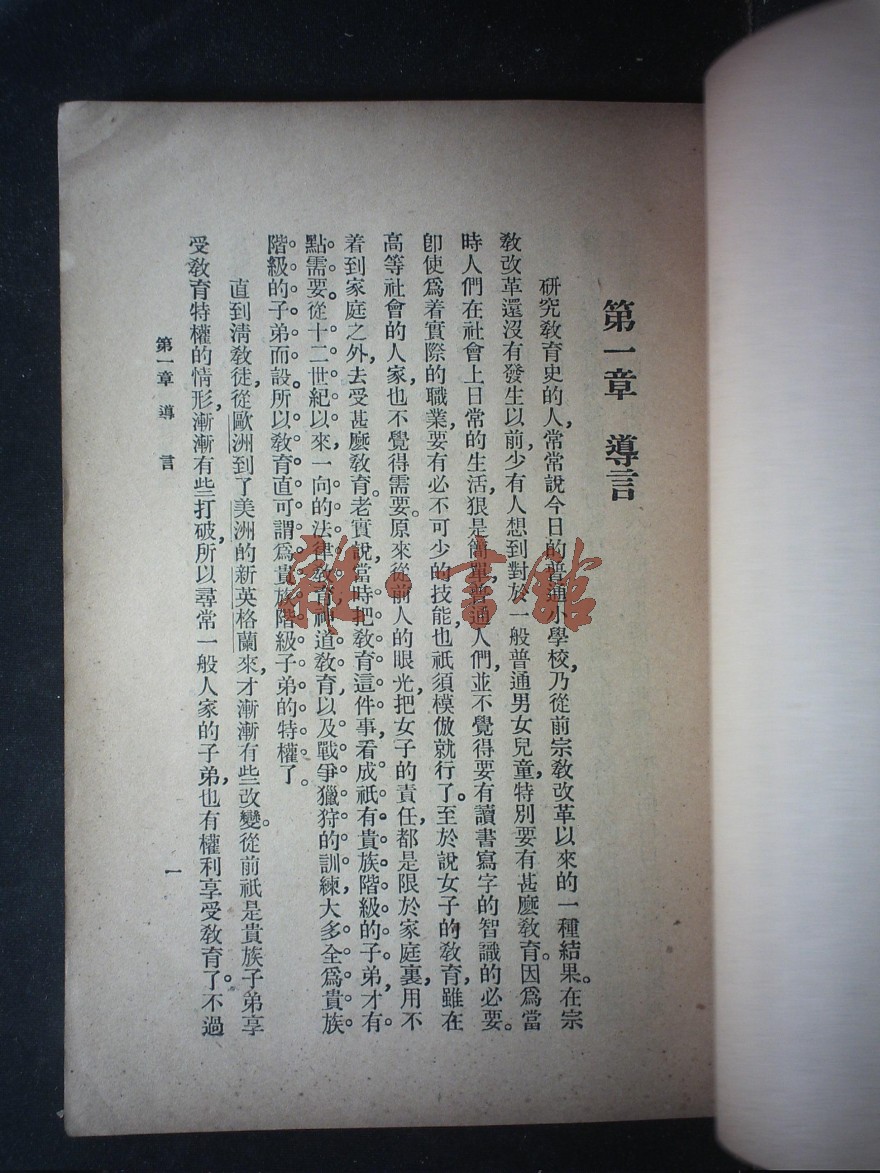 第一章 導言
研究教育史的人，常常說今日的普通小學校，乃從前宗教改革以來的一種結果。在宗
教改革還沒有發生以前，少有人想到對於一般普通男女兒童，特別要有甚麼教育。因爲當
時人們在社會上日常的生活，狠是簡單，普通人們，並不覺得要有讀書寫字的智識的必要。
卽使爲着實際的職業，要有必不可少的技能，也祇須模倣就行了。至於說女子的教育，雖在
高等社會的人家，也不覺得需要。原來從前人的眼光，把女子的責任，都是限於家庭裏，用不
着到家庭之外，去受甚麼教育。老實說，當時把教育這件事，看成祇有貴族階級的子弟，才有
點需要。從十二世紀以來，一向的法律教育，神道教育，以及戰爭獵狩的訓練，大多全爲貴族
階級的子弟而設，所以教育直可謂爲貴族階級子弟的特權了。
直到淸教徒，從歐洲到了美洲的新英格蘭來，才漸漸有些改變。從前祇是貴族子弟享
受教育特權的情形，漸漸有些打破，所以尋常一般人家的子弟，也有權利享受教育了。不過
第一章 導言
一
雜·書館